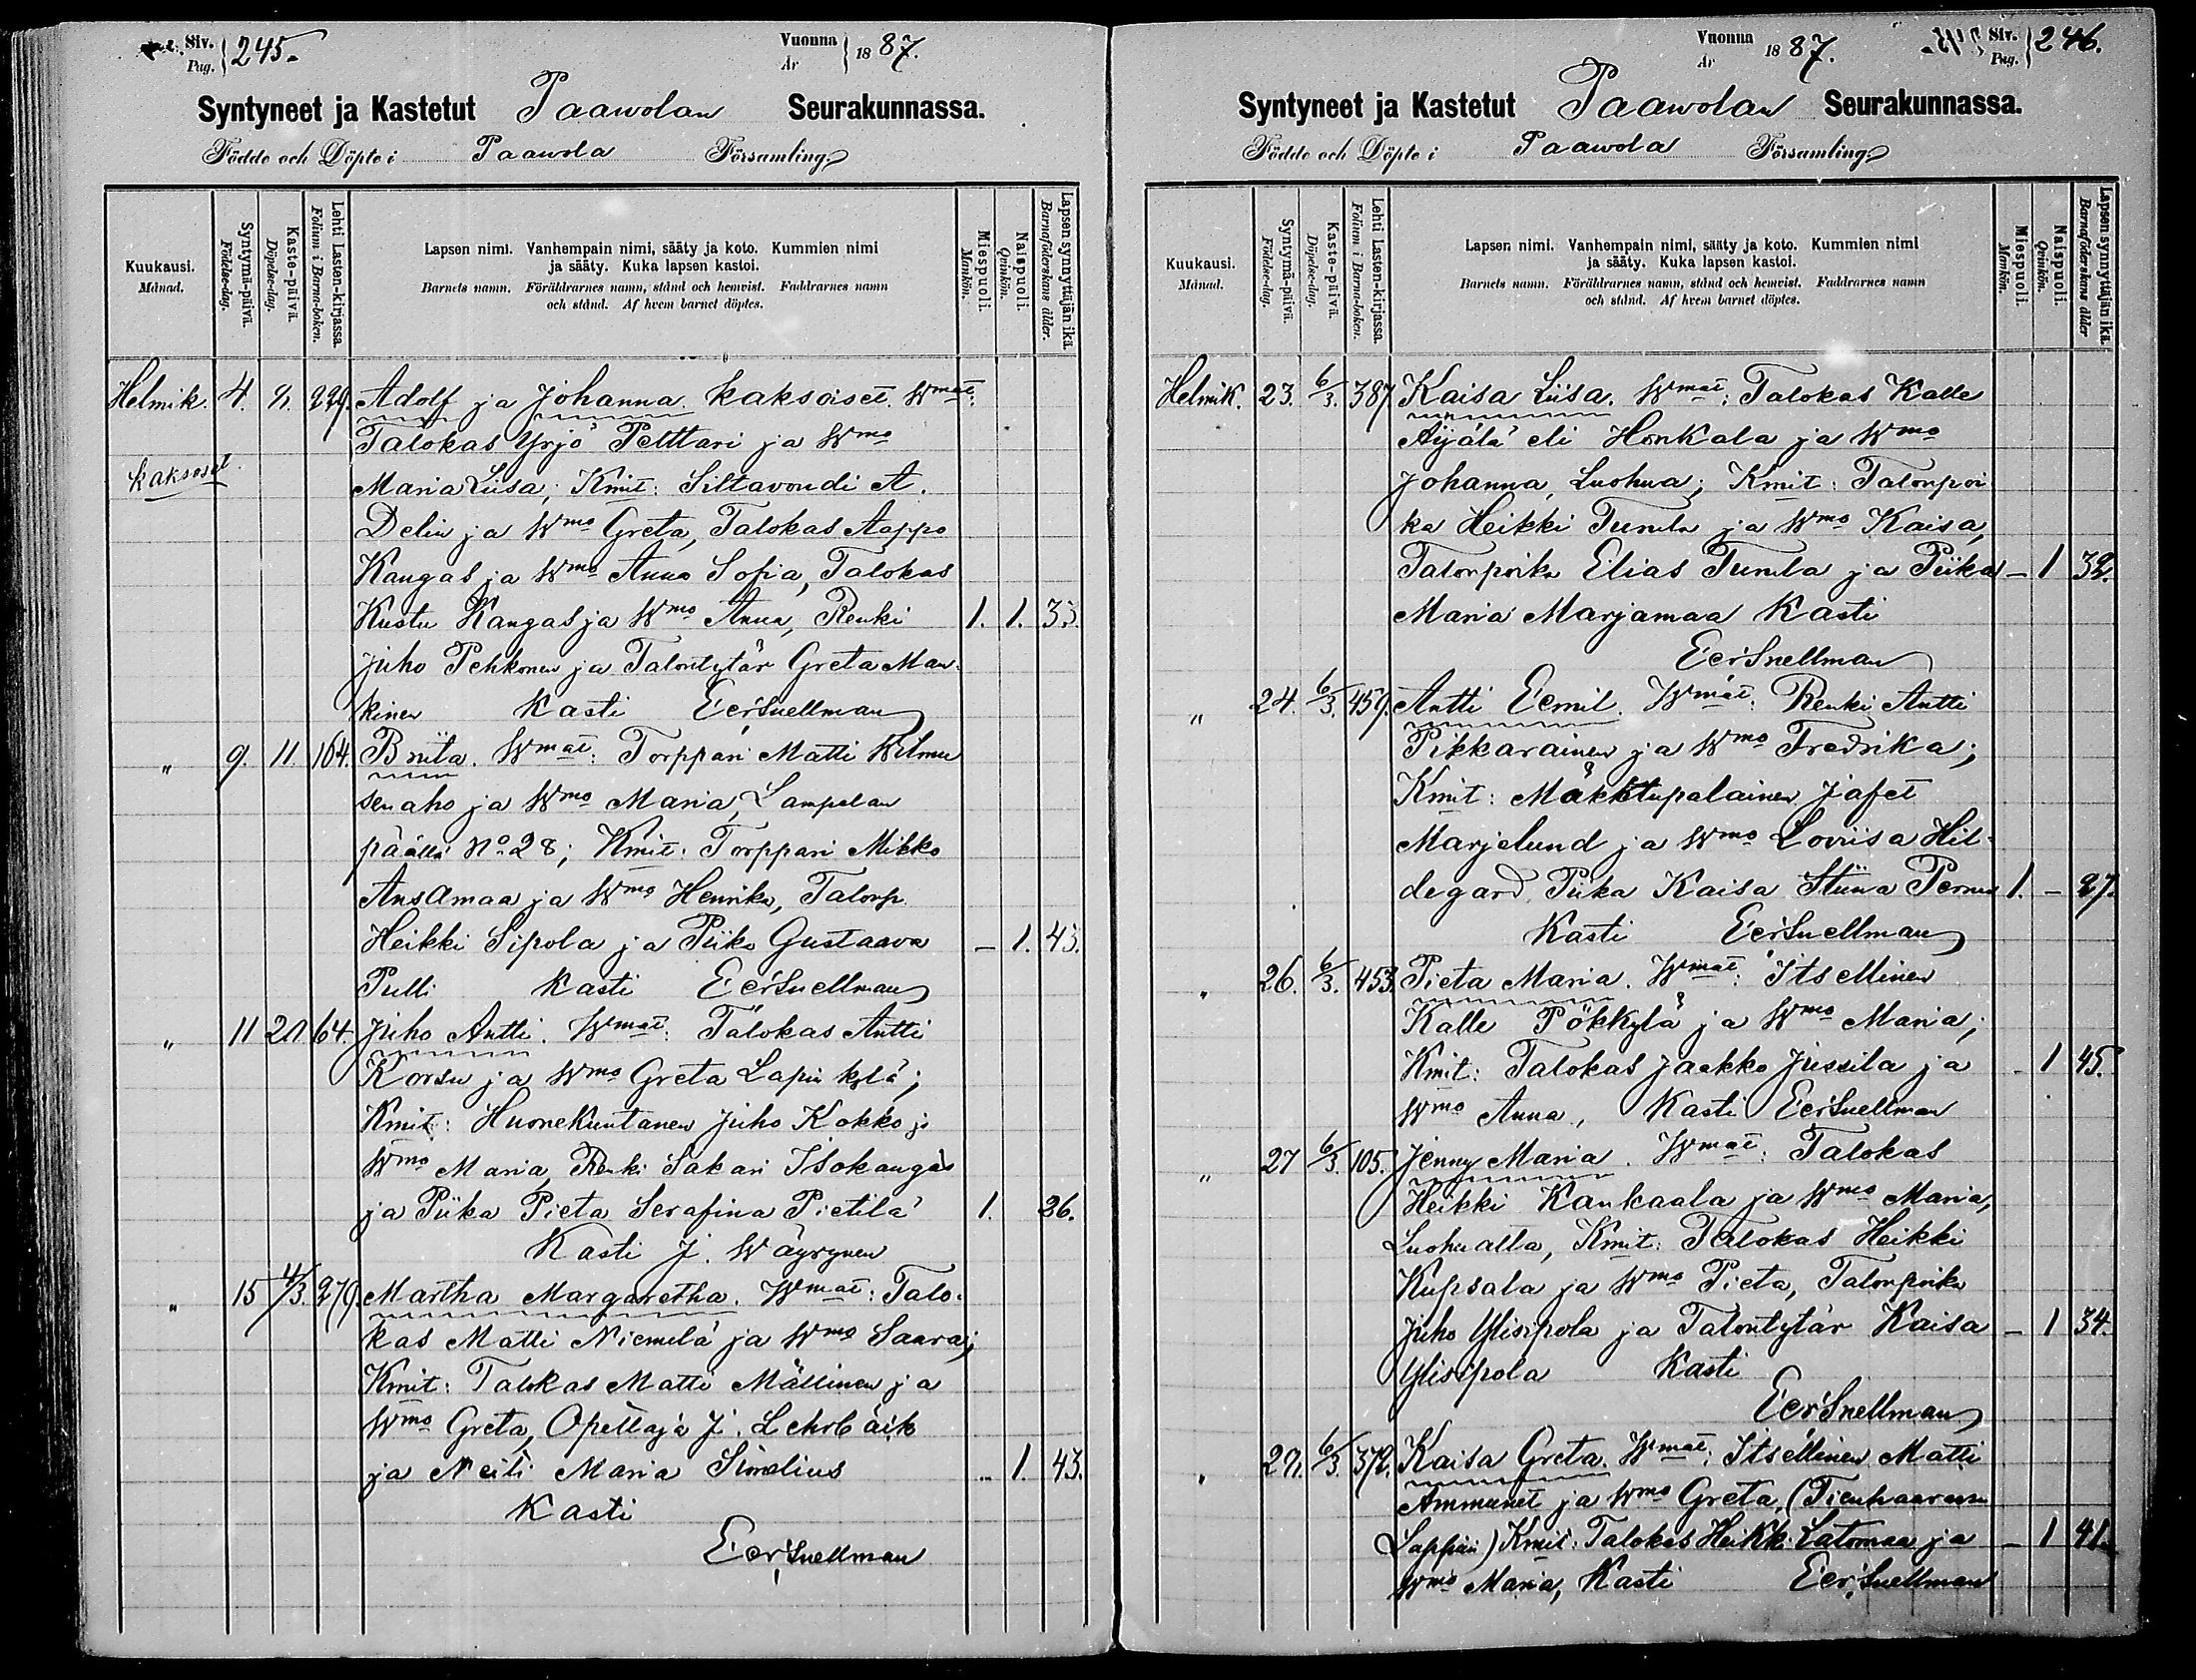 Siv. Pag. 245.
Vuonna År 1887.
Syntyneet ja Kastetut Paawolan Seurakunnassa.
Födde och Döpte i Paawola Församling
Kuukausi. Månad.
Syntymä-päivä. Födelse-dag.
Kaste-päivä. Döpelse-dag.
Lehti Lasten-kirjassa. Folium i Barna-boken.
Lapsen nimi. Vanhempain nimi, sääty ja koto. Kummien nimi
ja sääty. Kuka lapsen kastoi.
Barnets namn. Föräldrarnes namn, stånd och hemvist. Faddrarnes namn
och stånd. Af hvem barnet döptes.
Miespuoli. Mankön.
Naispuoli. Qvinkön.
Lapsen synnyttäjän ikä. Barnaföderskans ålder.
Helmik. 4. 229. Adolf ja Johanna. kaksoiset. Wmat:
Talokas Yrjö Pelttari ja Wmo
kaksoset Maria Liisa; Kmit: Siltavoudi A.
Delin ja Wmo Greta, Talokas Aappo
Kangas ja Wmo Anna Sofia, Talokas
Kustu Kangas ja Wmo Anna, Renki 1. 1. 33.
Juho Pehkonen ja Talontytär Greta Man-
kinen Kasti EerSnellman
" 9. 11. 164. Briita. Wmat: Torppari Matti Wilmu
senaho ja Wmo Maria, Lampelan
päällä No 28; Kmit: Torppari Mikko
Ansamaa ja Wmo Henrika, Talonp.
Heikki Sipola ja Piika Gustaava – 1. 43.
Pulli Kasti EerSnellman
" 11 64. Juho Antti. Wmat: Talokas Antti
Korsu ja Wmo Greta Lapin kylä;
Kmit: Huonekuntanen Juho Kokko ja
Wmo Maria, Renki Sakari Isokangas
ja Piika Pieta Serafina Pietilä 1. 26.
Kasti J. Wäyrynen
" 15 4/3. 279. Martha Margaretha. Wmat: Talo-
kas Matti Niemelä ja Wmo Saara;
Kmit: Talokas Matti Mällinen ja
Wmo Greta, Opettaja J. Lehrbäck
ja Neiti Maria Simelius – 1. 43.
Kasti
EerSnellman
Vuonna År 1887.
Siv. Pag. 246.
Syntyneet ja Kastetut Paawolan Seurakunnassa.
Födde och Döpte i Paawola Församling
Kuukausi. Månad.
Syntymä-päivä. Födelse-dag.
Kaste-päivä. Döpelse-dag.
Lehti Lasten-kirjassa. Folium i Barna-boken.
Lapsen nimi. Vanhempain nimi, sääty ja koto. Kummien nimi
ja sääty. Kuka lapsen kastoi.
Barnets namn. Föräldrarnes namn, stånd och hemvist. Faddrarnes namn
och stånd. Af hvem barnet döptes.
Miespuoli. Mankön.
Naispuoli. Qvinkön.
Lapsen synnyttäjän ikä. Barnaföderskans ålder
Helmik. 23. 6/3. 387. Kaisa Liisa. Wmat: Talokas Kalle
Äijälä eli Honkala ja Wmo
Johanna, Luohua; Kmit: Talonpoi
ka Heikki Tumla ja Wmo Kaisa,
Talonpoika Elias Tumla ja Piika – 1 32.
Maria Marjamaa Kasti
EerSnellman
" 24. 6/3. 459. Antti Eemil. Wmat: Renki Antti
Pikkarainen ja Wmo Fredrika;
Kmit: Mäkitupalainen Jafet
Marjelund ja Wmo Loviisa Hil-
degard, Piika Kaisa Stiina Pernu 1. – 27.
Kasti EerSnellman
" 26. 6/3. 453. Pieta Maria. Wmat: Itsellinen
Kalle Pökkylä ja Wmo Maria;
Kmit: Talokas Jaakko Jussila ja – 1 45.
Wmo Anna, Kasti EerSnellman
" 27 6/3. 105. Jenny Maria. Wmat: Talokas
Heikki Kankaala ja Wmo Maria,
Luohualta, Kmit: Talokas Heikki
Kupsala ja Wmo Pieta, Talonpoika
Juho Ylisipola ja Talontytär Kaisa – 1 34.
Ylisipola Kasti
EerSnellman
" 6/3. 372. Kaisa Greta. Wmat: Itsellinen Matti
Ammunet ja Wmo Greta,
Kmit: Talokas Heikki Latomaa ja – 1 41.
Wmo Maria, Kasti EerSnellman